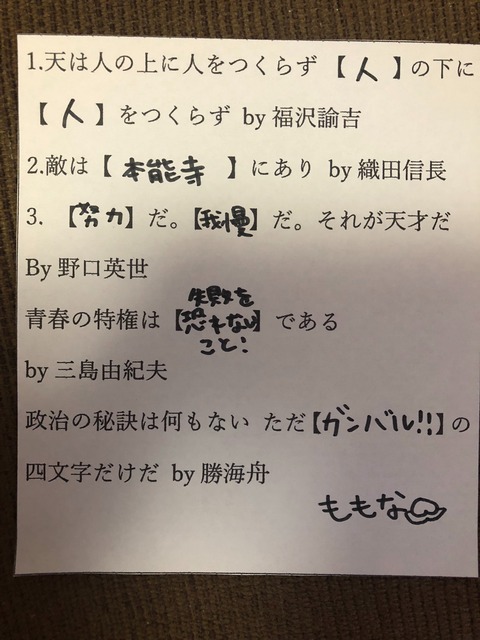 1.天は人の上に人をつくらず【人】の下に
【人】をつくらず by 福沢諭吉
2.敵は【本能寺】にあり by 織田信長
3. 【努力】だ。【我慢】だ。それが天才だ
By 野口英世
青春の特権は【失敗を恐れないこと!】である
by 三島由紀夫
政治の秘訣は何もない ただ【ガンバル!!】の
四文字だけだ by 勝海舟
ももな